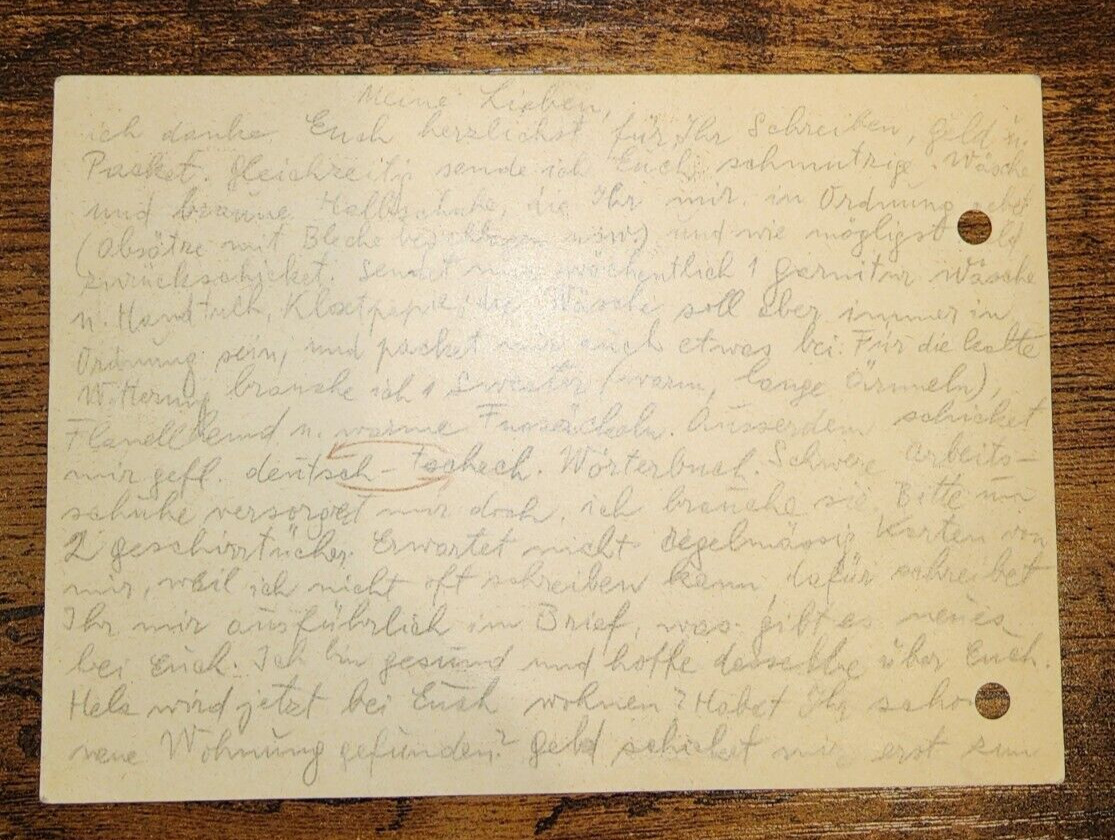 Meine Lieben,
ich danke Euch herzlichst für Ihr Schreiben, Geld u.
Packet. Gleichzeitig sende ich Euch schmutzige Wäsche
und braune Halbschuhe, die Ihr mir in Ordnung gebet
(Absätze mit Bleche beschlagen usw.) und wie möglichst
zurückschicket. Sendet mir wöchentlich 1 Garnitur Wäsche
u. Handtuch, Klosetpapir, die Wäsche soll aber immer in
Ordnung sein, und packet mir auch etwas bei. Für die kalte
Witterung brauche ich 1 Sweater (warm, lange Ärmeln),
Flanellhemd u. warme Fussöckeln. Ausserdem schicket
mir gefl. deutsch-tschech. Wörterbuch. Schwere Arbeits-
schuhe versorget mir doch, ich brauche sie. Bitte um
2 Geschirrtücher. Erwartet nicht regelmässig Karten von
mir, weil ich nicht oft schreiben kann, dafür schreibet
Ihr mir ausführlich im Brief, was gibt es neues
bei Euch. Ich bin gesund und hoffe dasselbe über Euch.
Hela wird jetzt bei Euch wohnen? Habet Ihr scho
neue Wohnung gefunden? Geld schicket mir erst zum